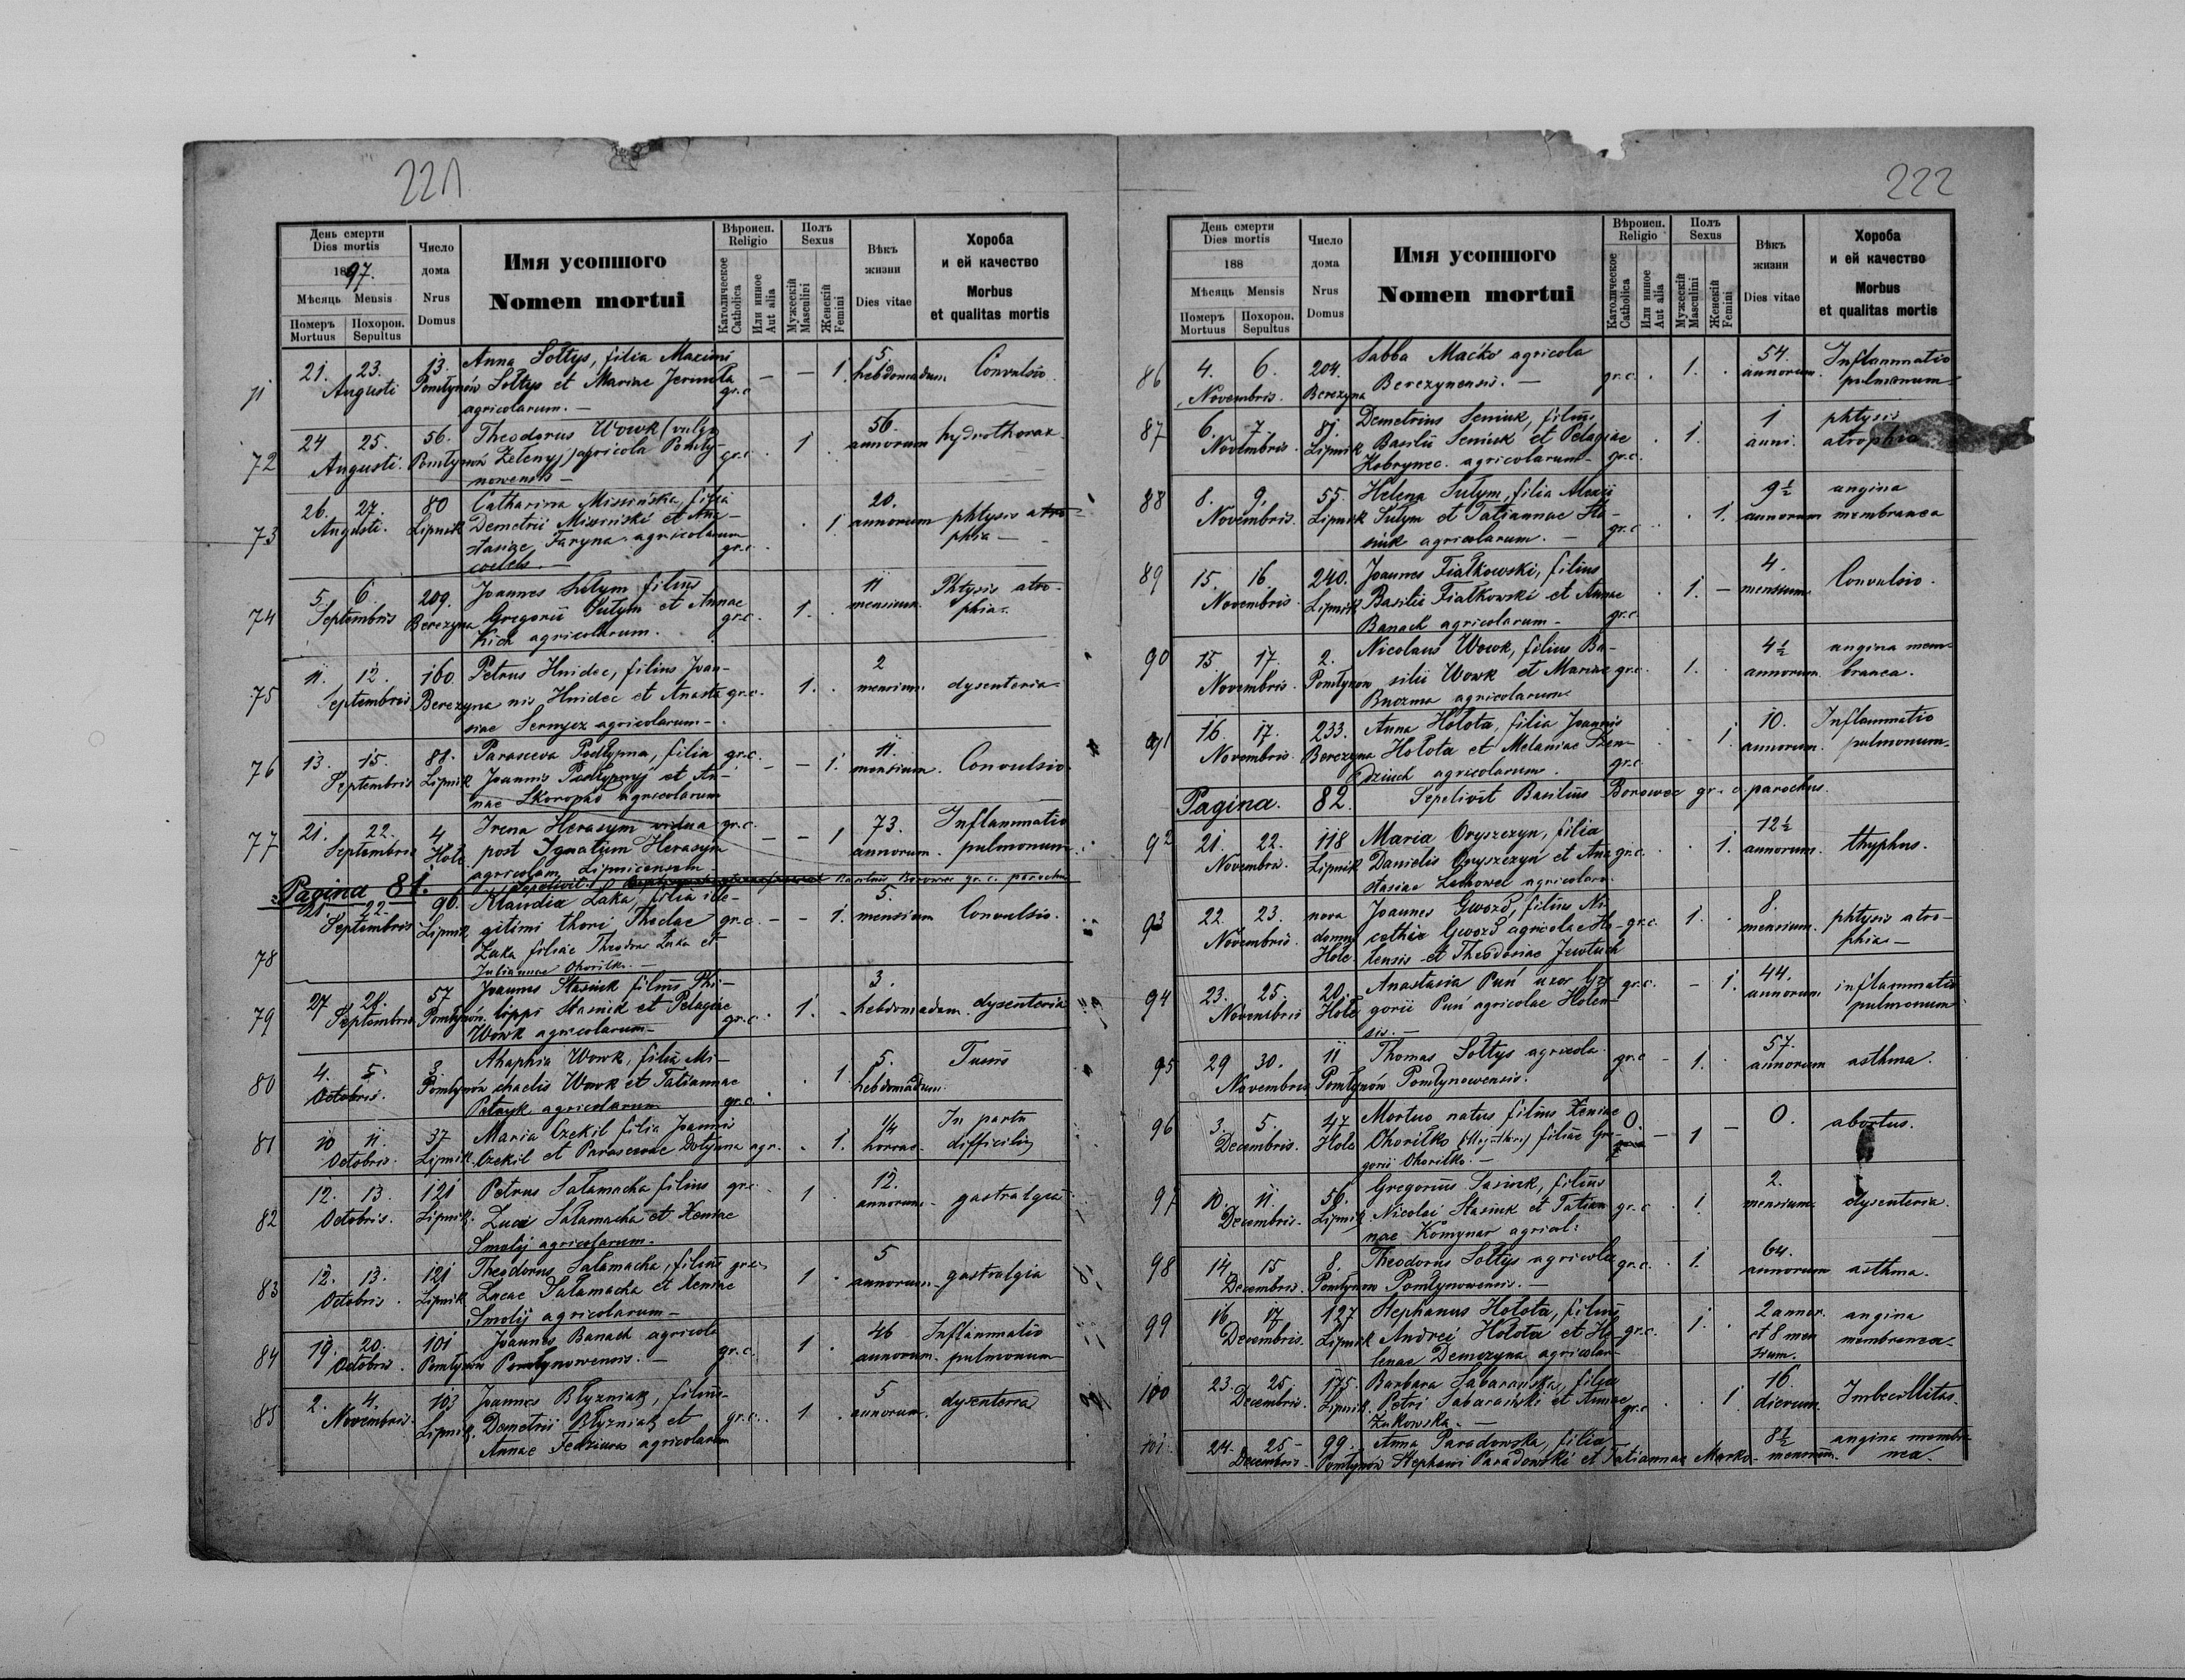 221
День смерти
Dies mortis
1897.
Мѣсяць Mensis
Померъ Mortuus
Похорон. Sepultus
Число дома
Nrus Domus
Имя усопшого
Nomen mortui
Вѣроисп.
Religio
Католическое Catholica
Или инное Aut alia
Полъ
Sexus
Мужескій Masculini
Женскій Femini
Вѣкъ жизни
Dies vitae
Хороба
и ей качество
Morbus
et qualitas mortis
71 21. 23. Augusti 13. Pomłynów
Anna Sołtys, filia Maximi
Sołtys et Mariae
agricolarum. —
gr.c. — — 1. 5. hebdomadum Convulsio
72 24 25. Augusti. 56. Pomłynów
Theodorus Wowk (vulgo
Zełenyj) agricola Pomły-
nowensis —
gr.c. 1 56. annorum hydrothorax
73 26. 27. Augusti. 80 Lipnik
Catharina Misińska, filia
Demetrii Misiński et Ana-
stasiae Faryna agricolarum
coelebs. —
gr.c. 1 20. annorum phtysis atro-
phia —
74 5 6 Septembris 209. Berezyna
Joannes Sułym filius
Gregorii Sułym et Annae
Kich agricolarum.
gr.c. 1. 11 mensium Phtysis atro-
phia.
75 11. 12. Septembris 160 Berezyna
Petrus Hnidec, filius Joan-
nis Hnidec et Anasta
siae agricolarum —
gr.c. 1. 2 mensium dysenteria
76 13. 15. Septembris 88. Lipnik
Parasceva Podłypna, filia
Joannis Podłypnyj et An-
nae Skoropad agricolarum
gr.c. — — 1. 11. mensium. Convulsio.
77 21. 22. Septembris 4 Hołe
Irena Herasym vidua
post Ignatium Herasym
agricolam Lipnicensem
gr.c. — — 1 73. annorum. Inflammatio
pulmonum.
Pagina 81. Sepelivit Basilius Borowec gr. c. parochus
78 21. 22. Septembris 90. Lipnik
Klaudia Łaka, filia ille-
gitimi thori Theclae
Łaka filiae Theodori Łaka et
Juliannae Ohoriłko. —
gr.c. — — 1. 5. mensium Convulsio.
79 27 28. Septembris 57 Pomłynów
Joannes Stasiuk filius Phi-
lippi Stasiuk et Pelagiae
Wowk agricolarum —
gr.c. 1. 3. hebdomadum. dysenteria
80 4. 5. Octobris. 3. Pomłynów
Ahaphia Wowk, filia Mi-
chaelis Wowk et Tatiannae
agricolarum
gr.c. 1 5. hebdomadum. Tussis
81 10 11. Octobris. 37 Lipnik
Maria Czekil filia Joannis
Czekil et Parascevae agr.
1. 1/4 horae In partu
difficili
82 12. 13. Octobris. 121 Lipnik.
Petrus Sałamacha filius
Lucae Sałamacha et Xeniae
Smolij agricolarum.
gr.c. 1 12. annorum gastralgia
83 12. 13. Octobris 121 Lipnik
Theodorus Sałamacha, filius
Lucae Sałamacha et Xeniae
Smolij agricolarum —
gr.c. 1 5 annorum gastralgia
84 19. 20. Octobris. 101 Pomłynów
Joannes Banach agricola
Pomłynowensis. —
gr.c. 1 46 annorum. Inflammatio
pulmonum
85 2. 4. Novembris 103 Lipnik.
Joannes Błyzniak, filius
Demetrii Błyzniak et
Annae agricolarum
gr.c. 1 5 annorum. dysenteria
222
День смерти
Dies mortis
188
Мѣсяць Mensis
Померъ Mortuus
Похорон. Sepultus
Число дома
Nrus Domus
Имя усопшого
Nomen mortui
Вѣроисп.
Religio
Католическое Catholica
Или инное Aut alia
Полъ
Sexus
Мужескій Masculini
Женскій Femini
Вѣкъ жизни
Dies vitae
Хороба
и ей качество
Morbus
et qualitas mortis
86 4. 6. Novembris. 204. Berezyna
Sabba Maćko agricola
Berezynensis. —
gr.c. 1. 54. annorum. Inflammatio
pulmonum.
87 6. 7. Novembris. 81. Lipnik
Demetrius Seniuk, filius
Basilii Seniuk et Pelagiae
Kobrynec. agricolarum —
gr.c. 1. 1 anni. phtysis
atrophia
88 8. 9. Novembris. 55. Lipnik
Helena Sułym, filia Alexii
Sułym et Tatiannae Sta-
siuk agricolarum. —
gr.c. 1. 9½ annorum angina
membranea
89 15. 16 Novembris. 240. Lipnik
Joannes Fiałkowski, filius
Basilii Fiałkowski et Annae
Banach agricolarum —
gr.c. 1. — 4. mensium Convulsio.
90 15. 17. Novembris. 2. Pomłynow
Nicolaus Wowk, filius Ba-
silii Wowk et Mariae
agricolarum
gr.c. 1. 4½ annorum. angina mem-
branea.
91 16. 17. Novembris. 233. Berezyna
Anna Hołota, filia Joannis
Hołota et Melaniae Szen-
dziuch agricolarum.
gr.c. 1. 10. annorum. Inflammatio
pulmonum.
Pagina. 82. Sepelivit Basilius Borowec gr. c. parochus.
92 21. 22. Novembris. 118 Lipnik
Maria Oryszczyn, filia
Danielis Oryszczyn et Ana
stasiae agricolarum.
gr.c. 1. 12½ annorum. thyphus.
93 22. 23. Novembris. nova domus Hołe
Joannes Gwozd, filius Ni-
cethie Gwozd agricolae Ho-
lensis et Theodosiae
gr.c. 1. 8. mensium. phtysis atro-
phia —
94 23. 25. Novembris 20. Hołe
Anastasia Puń uxor Gre
gorii Puń agricolae Holen-
sis. —
gr.c. — 1. 44. annorum. inflammatio
pulmonum
95 29 30. Novembris 11 Pomłynów
Thomas Sołtys agricola
Pomłynowensis.
gr.c. 1. 57. annorum asthma.
96 3. 5. Decembris. 47 Hołe
Mortuo natus filius Xeniae
Ohoriłko filiae Gre-
gorii Ohoriłko. —
0. — 1 — 0. abortus.
97 10. 11. Decembris. 56. Lipnik
Gregorius Stasiuk, filius
Nicolai Stasiuk et Tatian
nae Komynar agricol:
gr.c. 1. 2. mensium dysenteria.
98 14. 15 Decembris. 8. Pomłynow
Theodorus Sołtys agricola
Pomłynowensis. —
gr.c. 1. 64. annorum asthma.
99 16 17 Decembris. 127 Lipnik
Stephanus Hołota, filius
Andrei Hołota et He-
lenae Demczyna agricolar.
gr.c. 1. 2 annor.
et 8 men
sium. angina
membranea
100 23. 25. Decembris. 175. Lipnik.
Barbara Sabarańska, filia
Petri Sabarański et Annae
Żukowska. —
gr.c. 1 16. dierum. Imbecillitas.
101. 24. 25 Decembris. 99. Pomłynów
Anna Paradowska, filia
Stephani Paradowski et Tatiannae
8½ mensium. angina membra-
nea.